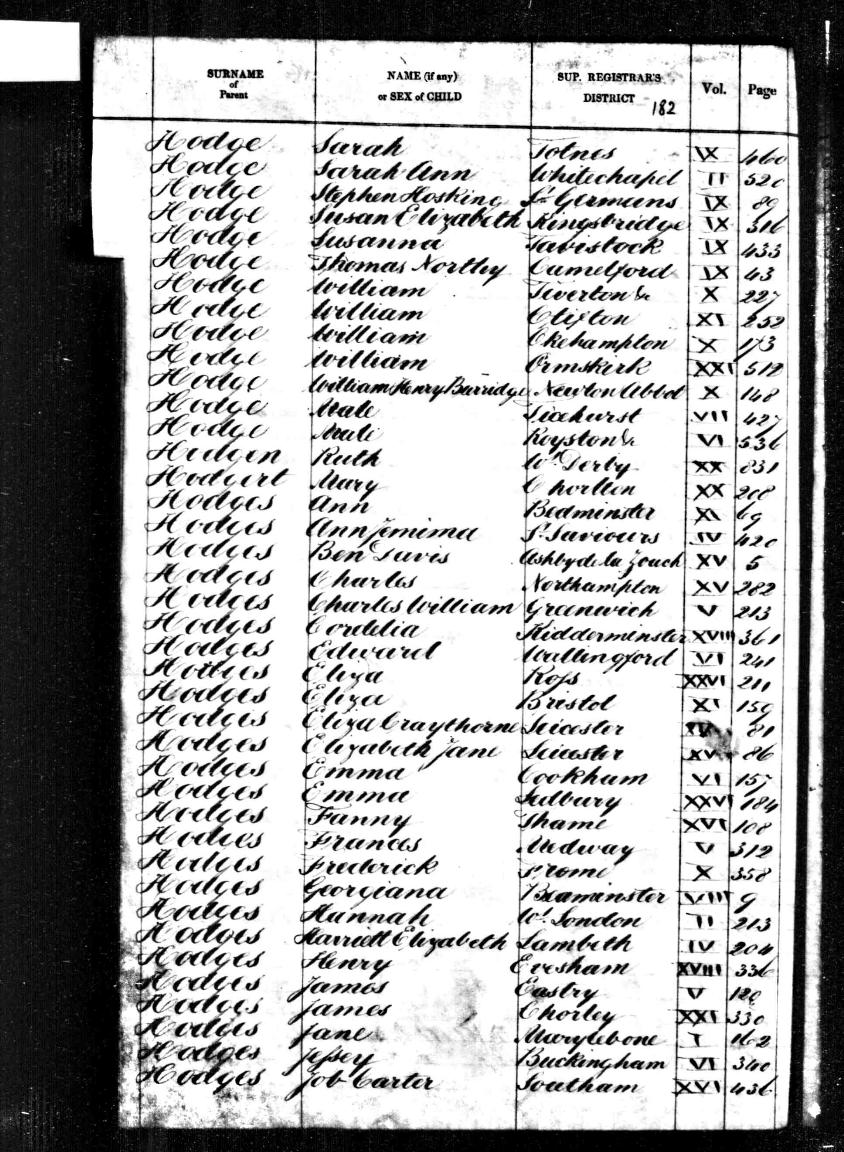 SURNAME of Parent NAME (if any) or SEX of CHILD SUP. REGISTRAR'S DISTRICT Vol. Page
182
Hodge Sarah Totnes IX 460
Hodge Sarah Ann Whitechapel II 520
Hodge Stephen Hosking St Germans IX 89
Hodge Susan Elizabeth Kingsbridge IX 316
Hodge Susanna Tavistock IX 433
Hodge Thomas Northey Camelford IX 43
Hodge William Tiverton &c X 227
Hodge William Clifton XI 252
Hodge William Okehampton X 173
Hodge William Ormskirk XXI 512
Hodge William Henry Burridge Newton Abbot X 148
Hodge Male Ticehurst VII 427
Hodge Male Royston &c VI 536
Hodgen Ruth Wt Derby XX 831
Hodgert Mary Chorlton XX 208
Hodges Ann Bedminster XI 69
Hodges Ann Jemima St Saviours IV 420
Hodges Ben Davis Ashby de la Zouch XV 5
Hodges Charles Northampton XV 282
Hodges Charles William Greenwich V 213
Hodges Cordelia Kidderminster XVIII 361
Hodges Edward Wallingford VI 241
Hodges Eliza Ross XXVI 211
Hodges Eliza Bristol XI 159
Hodges Eliza Craythorne Leicester 81
Hodges Elizabeth Jane Leicester XV 86
Hodges Emma Cookham VI 157
Hodges Emma Ledbury XXVI 184
Hodges Fanny Thame XVI 108
Hodges Francis Medway V 312
Hodges Frederick Frome X 358
Hodges Georgiana Beaminster VIII 9
Hodges Hannah Wt London II 213
Hodges Harriett Elizabeth Lambeth IV 204
Hodges Henry Evesham XVIII 336
Hodges James Eastry V 120
Hodges James Chorley XXI 330
Hodges Jane Marylebone I 162
Hodges Jessey Buckingham VI 340
Hodges Job Carter Southam XVI 436